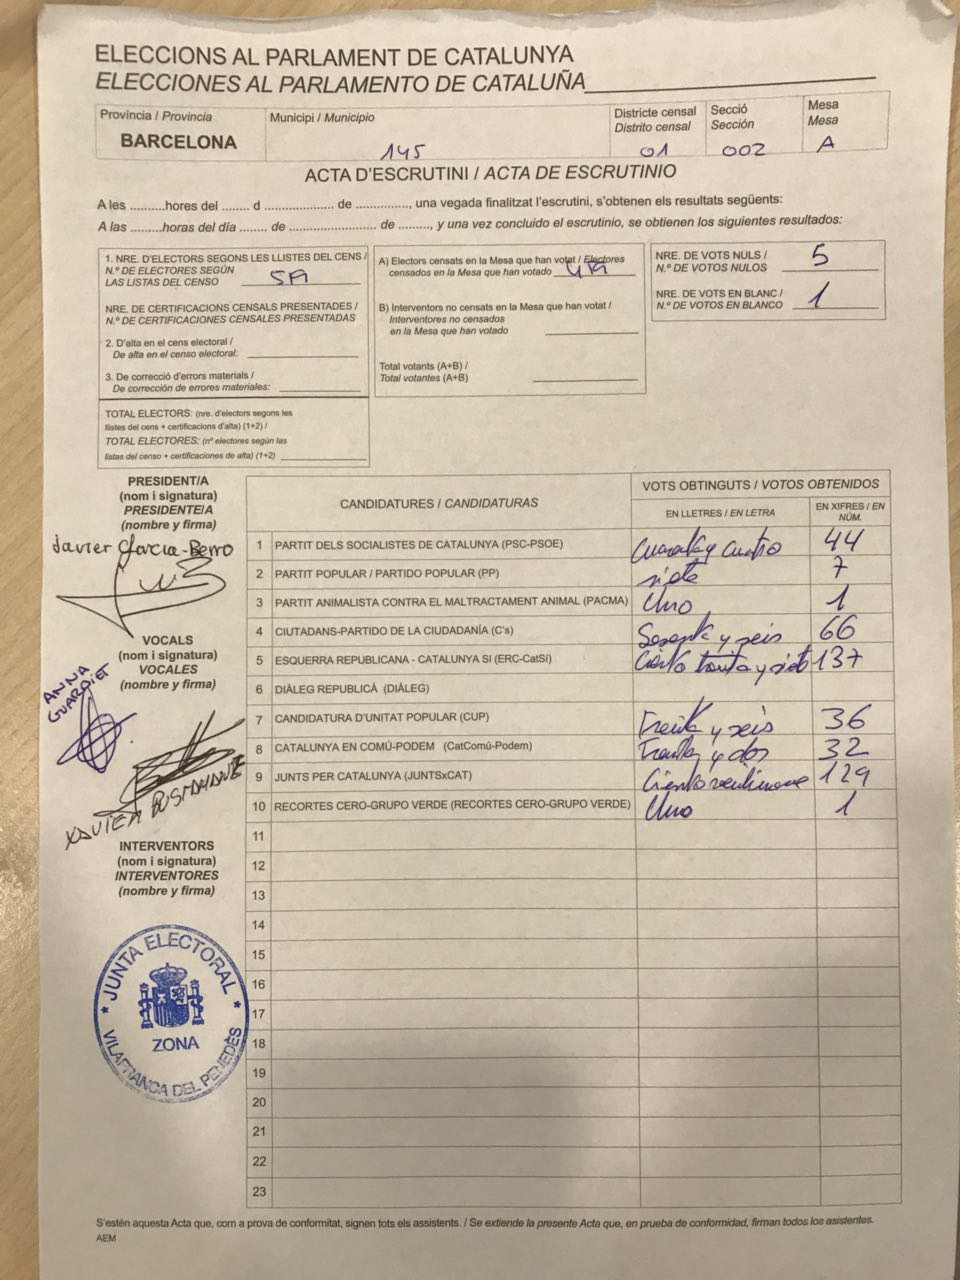 ELECCIONS AL PARLAMENT DE CATALUNYA
ELECCIONES AL PARLAMENTO DE CATALUÑA
Província / Provincia
BARCELONA
Municipi / Municipio
145
Districte censal
Distrito censal
01
Secció
Sección
002
Mesa
Mesa
A
ACTA D'ESCRUTINI / ACTA DE ESCRUTINIO
A les ..........hores del ........ d ........................ de .............., una vegada finalitzat l'escrutini, s'obtenen els resultats següents:
A las ..........horas del día ........ de .......................... de ........, y una vez concluido el escrutinio, se obtienen los siguientes resultados:
1. NRE. D'ELECTORS SEGONS LES LLISTES DEL CENS /
N.º DE ELECTORES SEGÚN
LAS LISTAS DEL CENSO
NRE. DE CERTIFICACIONS CENSALS PRESENTADES /
N.º DE CERTIFICACIONES CENSALES PRESENTADAS
2. D'alta en el cens electoral /
De alta en el censo electoral:
3. De correcció d'errors materials /
De corrección de errores materiales:
TOTAL ELECTORS: (nre. d'electors segons les
llistes del cens + certificacions d'alta) (1+2) /
TOTAL ELECTORES: (nº electores según las
listas del censo + certificaciones de alta) (1+2)
A) Electors censats en la Mesa que han votat / Electores
censados en la Mesa que han votado
B) Interventors no censats en la Mesa que han votat /
Interventores no censados
en la Mesa que han votado
Total votants (A+B) /
Total votantes (A+B)
NRE. DE VOTS NULS /
N.º DE VOTOS NULOS 5
NRE. DE VOTS EN BLANC /
N.º DE VOTOS EN BLANCO 1
PRESIDENT/A
(nom i signatura)
PRESIDENTE/A
(nombre y firma)
Javier García-Berro
VOCALS
(nom i signatura)
VOCALES
(nombre y firma)
ANNA
GUARDIET
XAVIER
INTERVENTORS
(nom i signatura)
INTERVENTORES
(nombre y firma)
JUNTA ELECTORAL
ZONA
VILAFRANCA DEL PENEDÈS
CANDIDATURES / CANDIDATURAS
VOTS OBTINGUTS / VOTOS OBTENIDOS
EN LLETRES / EN LETRA
EN XIFRES / EN
NÚM.
1 PARTIT DELS SOCIALISTES DE CATALUNYA (PSC-PSOE) Cuarenta y cuatro 44
2 PARTIT POPULAR / PARTIDO POPULAR (PP) siete 7
3 PARTIT ANIMALISTA CONTRA EL MALTRACTAMENT ANIMAL (PACMA) Uno 1
4 CIUTADANS-PARTIDO DE LA CIUDADANÍA (C's) Sesenta y seis 66
5 ESQUERRA REPUBLICANA - CATALUNYA SI (ERC-CatSí) Ciento treinta y siete 137
6 DIÀLEG REPUBLICÀ (DIÀLEG)
7 CANDIDATURA D'UNITAT POPULAR (CUP) Treinta y seis 36
8 CATALUNYA EN COMÚ-PODEM (CatComú-Podem) Treinta y dos 32
9 JUNTS PER CATALUNYA (JUNTSxCAT) Ciento veintinueve 129
10 RECORTES CERO-GRUPO VERDE (RECORTES CERO-GRUPO VERDE) Uno 1
11
12
13
14
15
16
17
18
19
20
21
22
23
S'estén aquesta Acta que, com a prova de conformitat, signen tots els assistents. / Se extiende la presente Acta que, en prueba de conformidad, firman todos los asistentes.
AEM